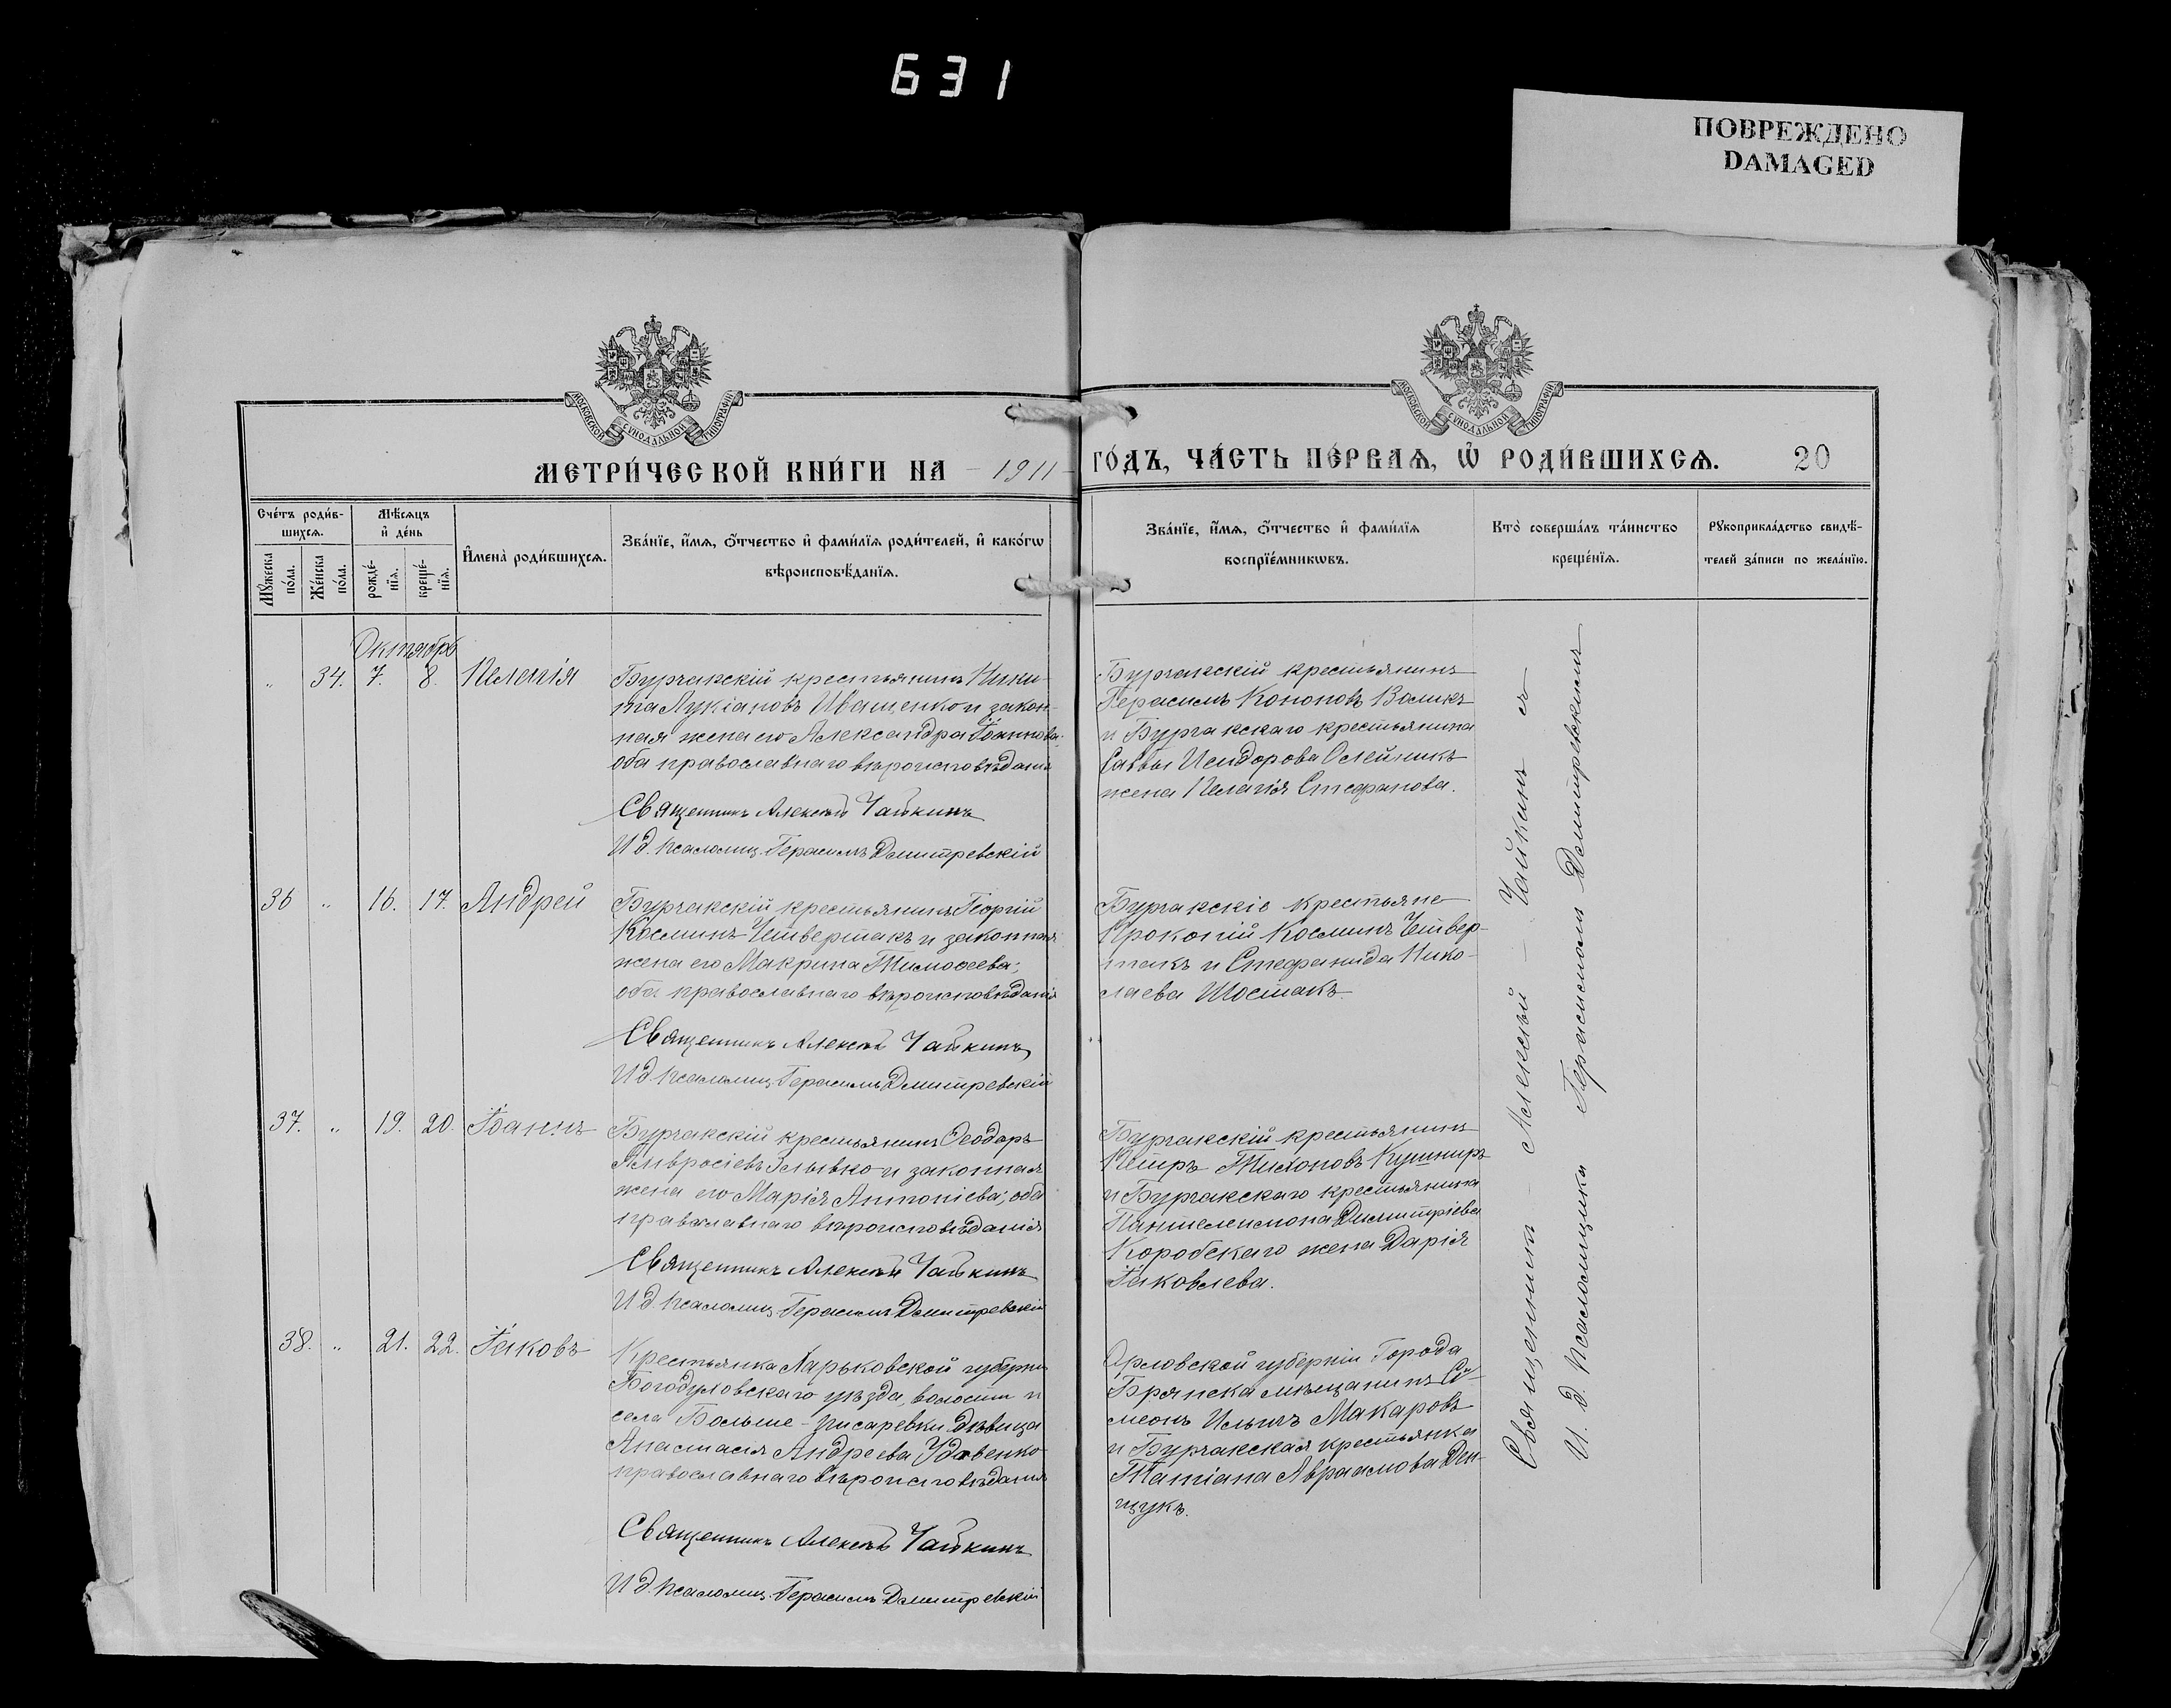 631
ПОВРЕЖДЕНО
DAMAGED
МОСКОВСКОЙ СѴНОДАЛЬНОЙ ТИПОГРАФІИ
МОСКОВСКОЙ СѴНОДАЛЬНОЙ ТИПОГРАФІИ
МЕТРИ́ЧЕСКОЙ КНИ́ГИ НА 1911 ГО́ДЪ, ЧА́СТЬ ПЕ́РВАѦ, Ѡ҆ РОДИ́ВШИХСѦ. 20
Сче́тъ роди́в-
шихсѧ.
Мꙋ́жеска по́ла.
Же́нска по́ла.
Мѣ́сѧцъ и҆ де́нь
рожде́-
нїѧ.
креще́-
нїѧ.
И҆мена̀ роди́вшихсѧ.
Зва́нїе, и҆́мѧ, ѻ҆́тчество и҆ фами́лїѧ роди́телей, и҆ како́гѡ
вѣроисповѣ́данїѧ.
Зва́нїе, и҆́мѧ, ѻ҆́тчество и҆ фами́лїѧ
воспрїе́мникѡвъ.
Кто̀ соверша́лъ та́инство
креще́нїѧ.
Рꙋкоприкла́дство свидѣ́-
телей за́писи по жела́нїю.
Октябрь
" 34. 7. 8. Пелагія
Бурчакскій крестьянинъ Ники-
та Лукіановъ Иващенко и закон-
ная жена его Александра Іоаннова;
оба православнаго вѣроисповѣданія
Священникъ Алексѣй Чайкинъ
И д. псаломщ. Герасимъ Дмитревскій
Бурчакскій крестьянинъ
Герасимъ Кононовъ Воликъ
и Бурчакскаго крестьянина
Саввы Исидорова Олейникъ
жена Пелагія Стефанова.
36 " 16. 17. Андрей
Бурчакскій крестьянинъ Георгій
Косминъ Четвертакъ и законная
жена его Макрина Тимоѳеева;
оба православнаго вѣроисповѣданія
Священникъ Алексѣй Чайкинъ
И д. псаломщ. Герасимъ Дмитревскій
Бурчакскіе крестьяне
Прокопій Косминъ Четвер-
такъ и Стефанида Нико-
лаева Шостакъ.
37. " 19. 20. Іоаннъ
Бурчакскій крестьянинъ Ѳеодоръ
Амвросіевъ Зъывко и законная
жена его Марія Антоніева; оба
православнаго вѣроисповѣданія
Священникъ Алексѣй Чайкинъ
И д. псаломщ. Герасимъ Дмитревскій
Бурчакскій крестьянинъ
Петръ Тихоновъ Кушниръ
и Бурчакскаго крестьянина
Пантелеимона Димитріева
Коробскаго жена Дарія
Іаковлева.
38. " 21. 22. Іаковъ
Крестьянка Харьковской губерніи
Богодуховскаго уѣзда, волости и
села Больше-Писаревки дѣвица
Анастасія Андреева Удовенко
православнаго вѣроисповѣданія
Священникъ Алексѣй Чайкинъ
И д. псаломщ. Герасимъ Дмитревскій
Орловской губерніи Города
Брянска мѣщанинъ Си-
меонъ Ильичъ Макаровъ
и Бурчакская крестьянка
Татіана Авраамова Ден-
щукъ.
Священникъ – Алексѣй – Чайкинъ съ
И. д. псаломщика Герасимомъ Дмитревскимъ